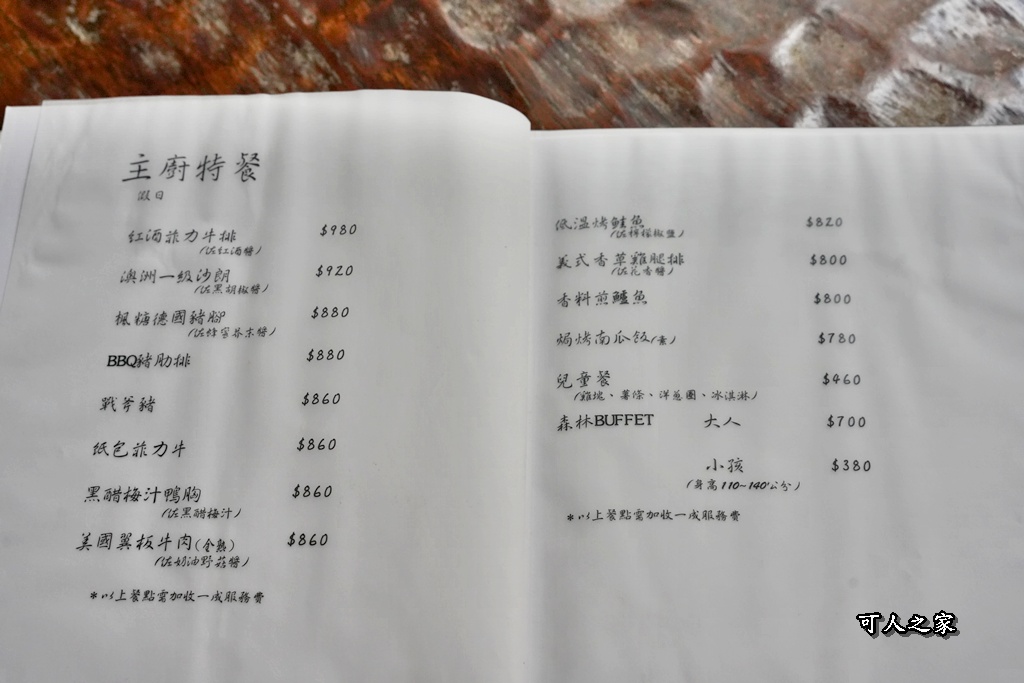 主廚特餐
假日
紅酒菲力牛排 $980
(佐紅酒醬)
澳洲一級沙朗 $920
(佐黑胡椒醬)
楓糖德國豬腳 $880
(佐蜂蜜芥末醬)
BBQ豬肋排 $880
戰斧豬 $860
紙包菲力牛 $860
黑醋梅汁鴨胸 $860
(佐黑醋梅汁)
美國翼板牛肉(全熟) $860
(佐奶油野菇醬)
*以上餐點需加收一成服務費
低溫烤鮭魚 $820
(佐檸檬椒鹽)
義式香草雞腿排 $800
(佐花香醬)
香料煎鱸魚 $800
焗烤南瓜飯(素) $780
兒童餐 $460
(雞塊、薯條、洋蔥圈、冰淇淋)
森林BUFFET 大人 $700
小孩 $380
(身高110~140公分)
*以上餐點需加收一成服務費
可人之家